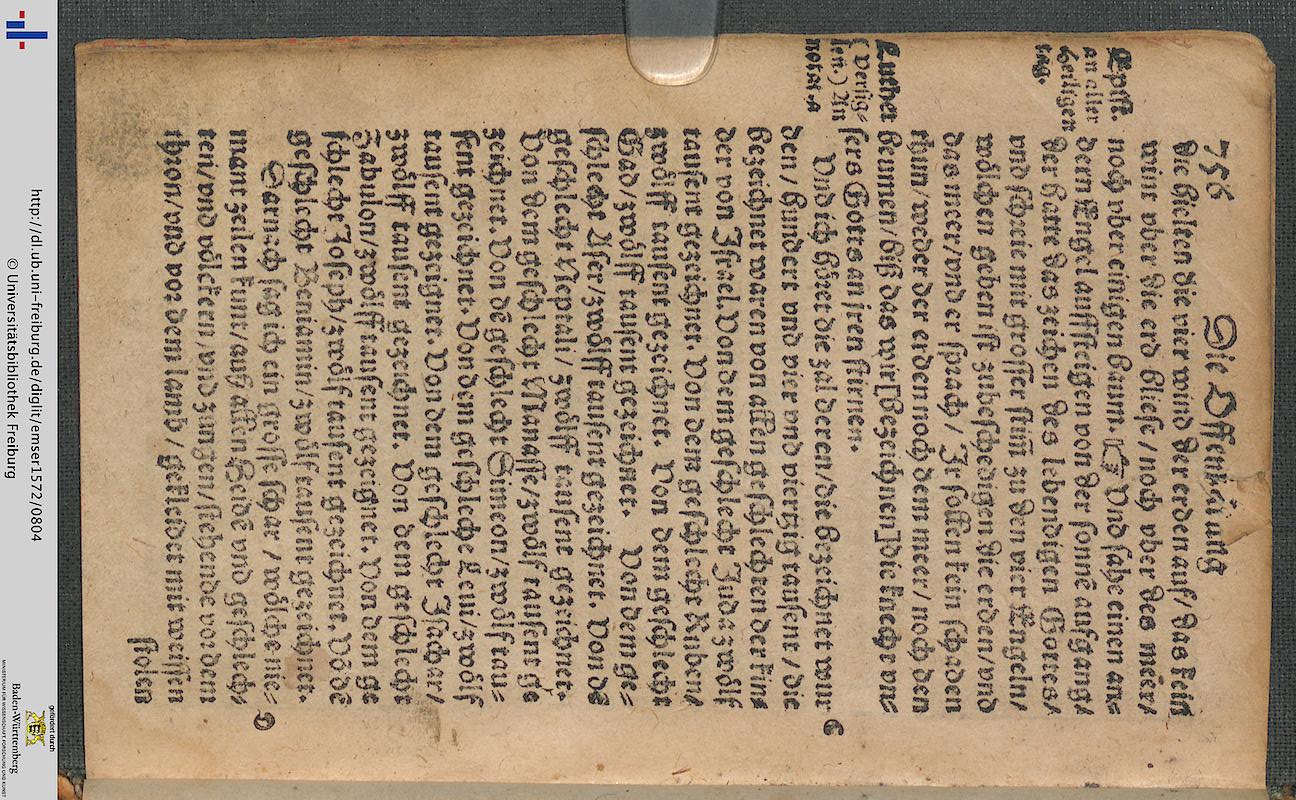 756
Die Offenbarung
die hielten die vier wind der erden auf/ das kein
wint vber die erd bliese/ noch vber des meer/
noch vber einigen baum. ☞ Vnd sahe einen an=
dern Engel auffsteigen von der sonne aufgang/
der hatte das zeichen des lebendigen Gottes/
vnd schreie mit grosser stim̃ zu den vier Engeln/
wölchen geben ist zubeschedigen die erden/ vnd
das meer/ vnd er sprach/ Ir sollen kein schaden
thun/ weder der erden noch dem meer/ noch den
beumen/ biß das wir [bezeichnen] die knecht vn=
sers Gottes an jren stirnen.
Epist.
an aller
heiligen
tag.
Luther
( versig=
len.) An
notat. a
Vnd ich höret die zal deren/ die bezeichnet wur
den/ hundert vnd vier vnd viertzig tausent/ die
bezeichnet waren von allen geschlechten der kin
der von Israel. Von dem geschlecht Juda zwölf
tausent gezeichnet. Von dem geschlecht Ruben/
zwölff tausent gezeichnet. Von dem geschlecht
Gad/ zwölff tausent gezeichnet. Von dem ge=
schlecht Aser/ zwölff tausent gezeichnet. Von dẽ
geschlecht Neptali/ zwölff tausent gezeichnet.
Von dem geschlecht Manasse/ zwölf tausent ge
zeichnet. Von dẽ geschlecht Simeon/ zwölf tau=
sent gezeichnet. Von dem geschlecht Leui/ zwölf
tausent gezeignet. Von dem geschlecht Isachar/
zwölff tausent gezeichnet. Von dem geschlecht
Zabulon/ zwölff tausent gezeignet. Von dem ge
schlecht Joseph/ zwölf tausent gezeichnet. Võ dẽ
geschlecht Beniamin/ zwölf tausent gezeichnet.
C
Darnach sag ich ein grosse schar/ wölche nie=
mant zeilen kunt/ auß allen Heidẽ vnd geschlech
ten/ vnd völckern/ vnd zungen/ stehende vor dem
thron/ vnd vor dem lamb/ gekleidet mit weissen
D
stolen
http://dl.ub.uni-freiburg.de/diglit/emser1572/0804
© Universitätsbibliothek Freiburg
gefördert durch
Baden-Württemberg
MINISTERIUM FÜR WISSENSCHAFT, FORSCHUNG UND KUNST